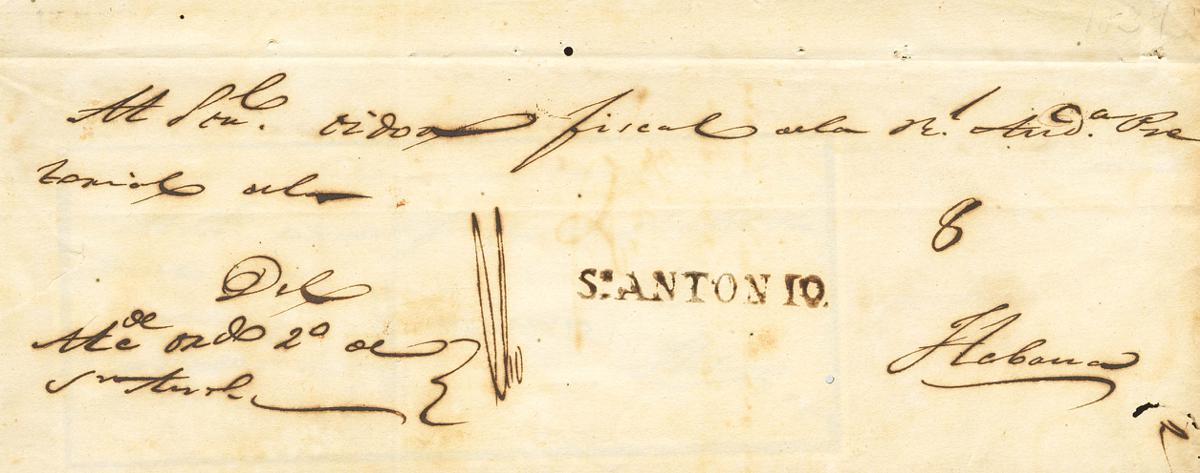 Al Sor. oidor fiscal dela Rl. Auda. Pre
torial dela
8
Del
Alcde ordo 2o de
Sn. ANTONIO.
Habana